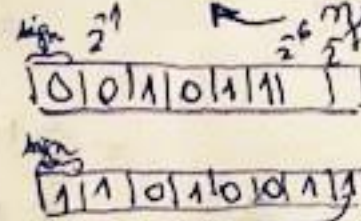 sign 2⁻¹ 2⁻⁶
0 0 1 0 1 1 1
sign
1 1 0 1 0 0 1 1